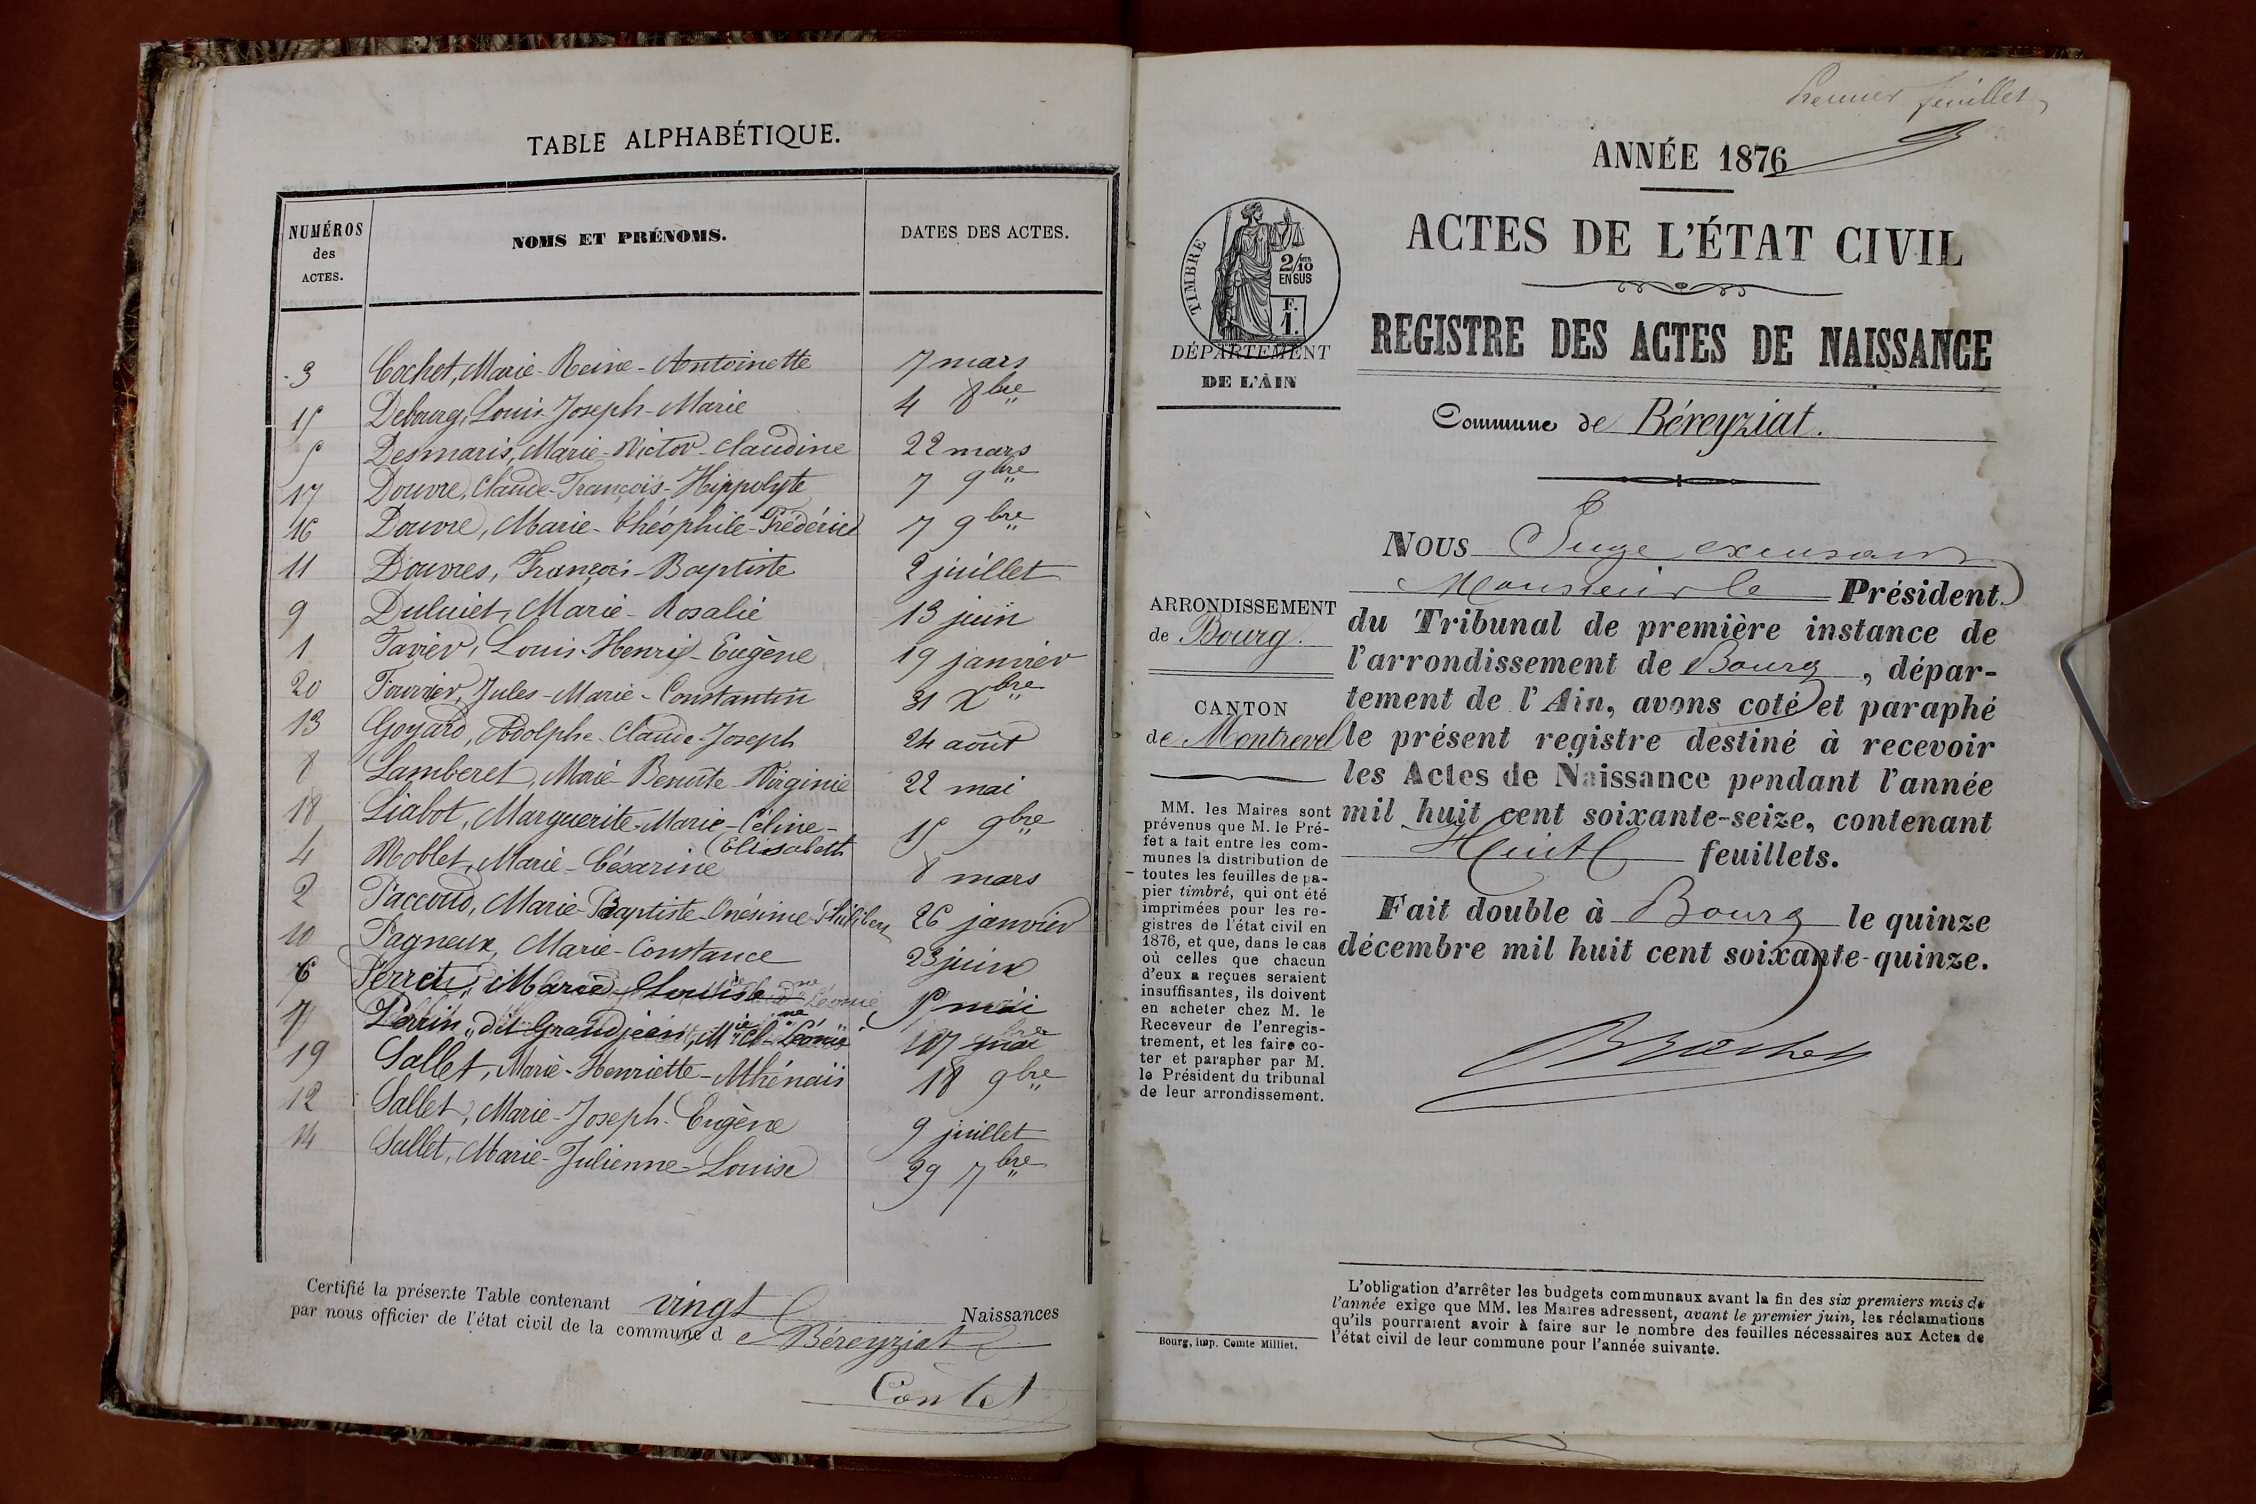 TABLE ALPHABÉTIQUE.
NUMÉROS des ACTES.
NOMS ET PRÉNOMS.
DATES DES ACTES.
3 Cochet, Marie-Reine-Antoinette 7 mars
15 Debourg, Louis-Joseph-Marie 4 8bre
5 Desmaris, Marie-Victor-Claudine 22 mars
17 Douvre, Claude-François-Hippolyte 7 9bre
16 Douvre, Marie-Théophile-Frédéric 7 9bre
11 Douvres, François-Baptiste 2 juillet
9 Duluiet, Marie-Rosalie 13 juin
1 Favier, Louis-Henri-Eugène 19 janvier
20 Fournier, Jules-Marie-Constantin 31 Xbre
13 Goyard, Adolphe-Claude-Joseph 24 août
8 Lamberet, Marie-Benoîte-Virginie 22 mai
18 Liabot, Marguerite-Marie-Céline- 15 9bre
Elisabeth
4 Moblet, Marie-Césarine 8 mars
2 Paccoud, Marie-Baptiste-Onésime-Philibert 26 janvier
10 Pagneux, Marie-Constance 23 juin
6 Perret, Marie mai
7 Perrin, dit Grandjean, Mie Cl-ne Léonie
19 Sallet, Marie-Henriette-Athénaïs 18 9bre
12 Sallet, Marie-Joseph-Eugène 9 juillet
14 Sallet, Marie-Julienne-Louise 29 7bre
Certifié la présente Table contenant vingt Naissances
par nous officier de l'état civil de la commune de Béreyziat
Contet
Premier feuillet
ANNÉE 1876
ACTES DE L'ÉTAT CIVIL
REGISTRE DES ACTES DE NAISSANCE
TIMBRE
2/10 EN SUS
F. 1.
DÉPARTEMENT
DE L'AIN
Commune de Béreyziat.
ARRONDISSEMENT
de Bourg.
CANTON
de Montrevel
MM. les Maires sont
prévenus que M. le Pré-
fet a fait entre les com-
munes la distribution de
toutes les feuilles de pa-
pier timbré, qui ont été
imprimées pour les re-
gistres de l'état civil en
1876, et que, dans le cas
où celles que chacun
d'eux a reçues seraient
insuffisantes, ils doivent
en acheter chez M. le
Receveur de l'enregis-
trement, et les faire co-
ter et parapher par M.
le Président du tribunal
de leur arrondissement.
NOUS Juge
Monsieur le Président
du Tribunal de première instance de
l'arrondissement de Bourg, dépar-
tement de l'Ain, avons coté et paraphé
le présent registre destiné à recevoir
les Actes de Naissance pendant l'année
mil huit cent soixante-seize, contenant
Huit feuillets.
Fait double à Bourg le quinze
décembre mil huit cent soixante-quinze.
L'obligation d'arrêter les budgets communaux avant la fin des six premiers mois de
l'année exige que MM. les Maires adressent, avant le premier juin, les réclamations
qu'ils pourraient avoir à faire sur le nombre des feuilles nécessaires aux Actes de
l'état civil de leur commune pour l'année suivante.
Bourg, imp. Comte Milliet.